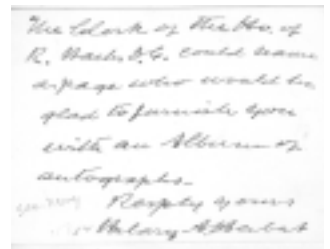 The Clerk of the Ho. of
R. Wash. D.C. could name
a page who would be
glad to furnish you
with an Album of
autographs.
Resply yours
Hilary A. Herbert